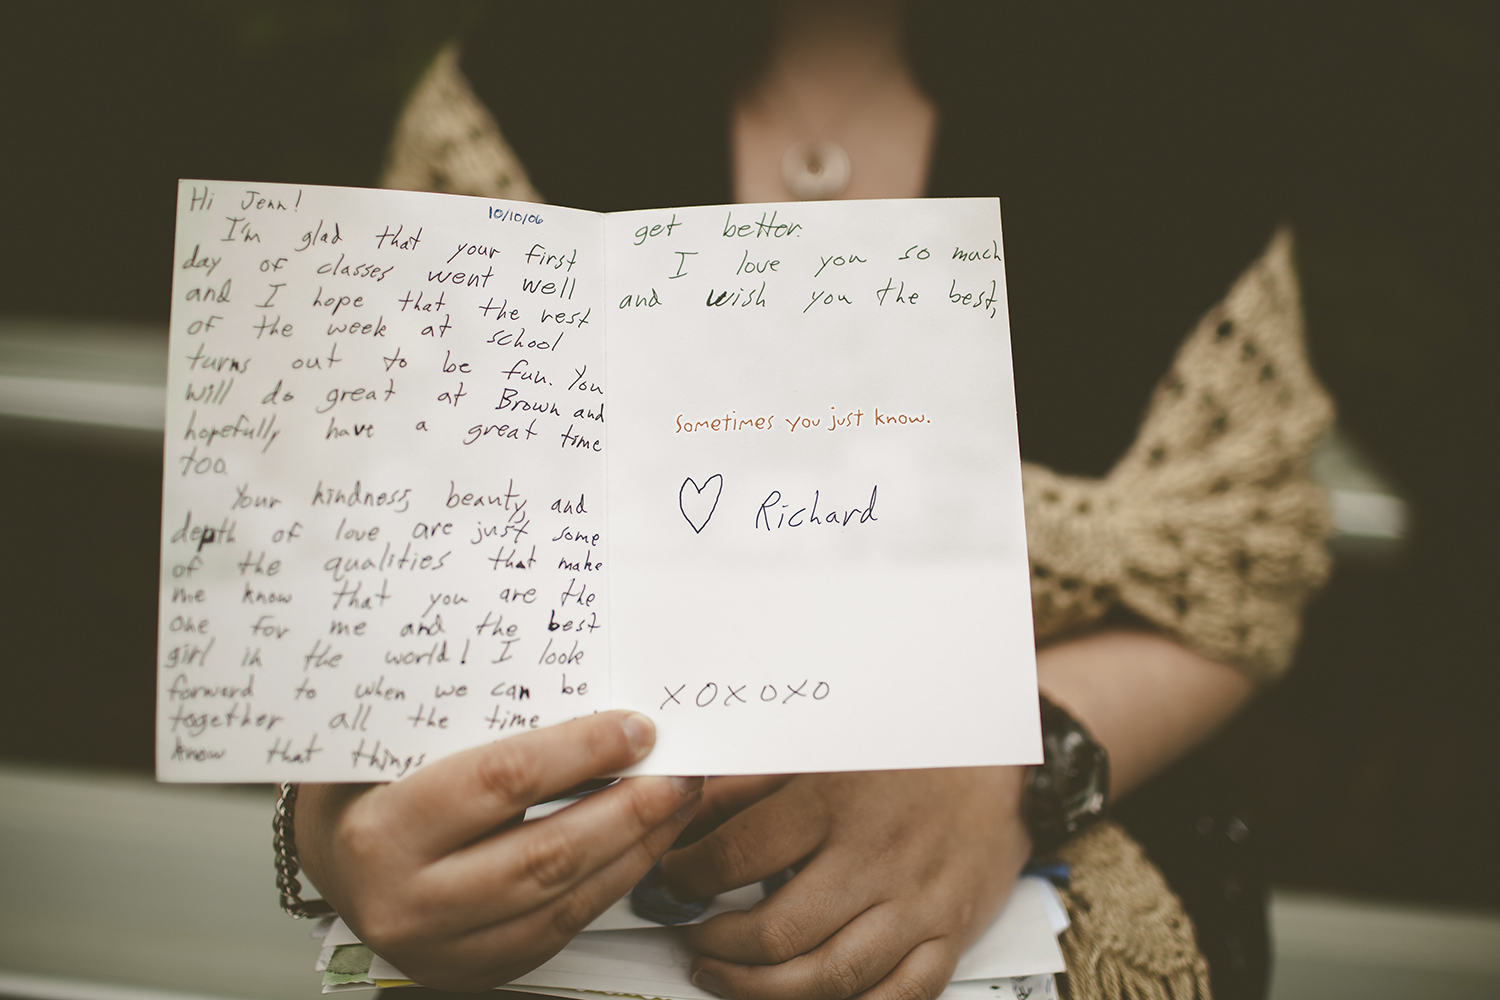 Hi Jenn!
10/10/06
I'm glad that your first
day of classes went well
and I hope that the rest
of the week at school
turns out to be fun. You
will do great at Brown and
hopefully have a great time
too.
Your kindness, beauty, and
depth of love are just some
of the qualities that make
me know that you are the
one for me and the best
girl in the world! I look
forward to when we can be
together all the time
know that things
get better.
I love you so much
and wish you the best,
Sometimes you just know.
♡ Richard
XOXOXO